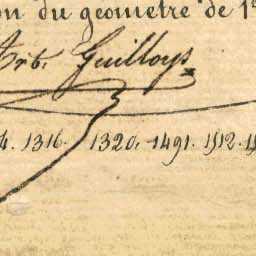 on du geometre de 1
Arb. Guilloys
4. 1316. 1320. 1491. 1512. 1